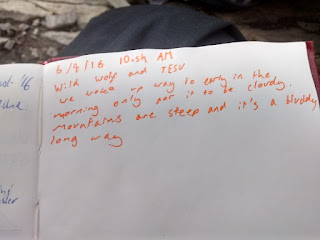 6/8/16 10.sh AM
Wild wolf and TESU
we woke up way to early in the
morning only for it to be cloudy.
mountains are steep and it's a bluddy
long way